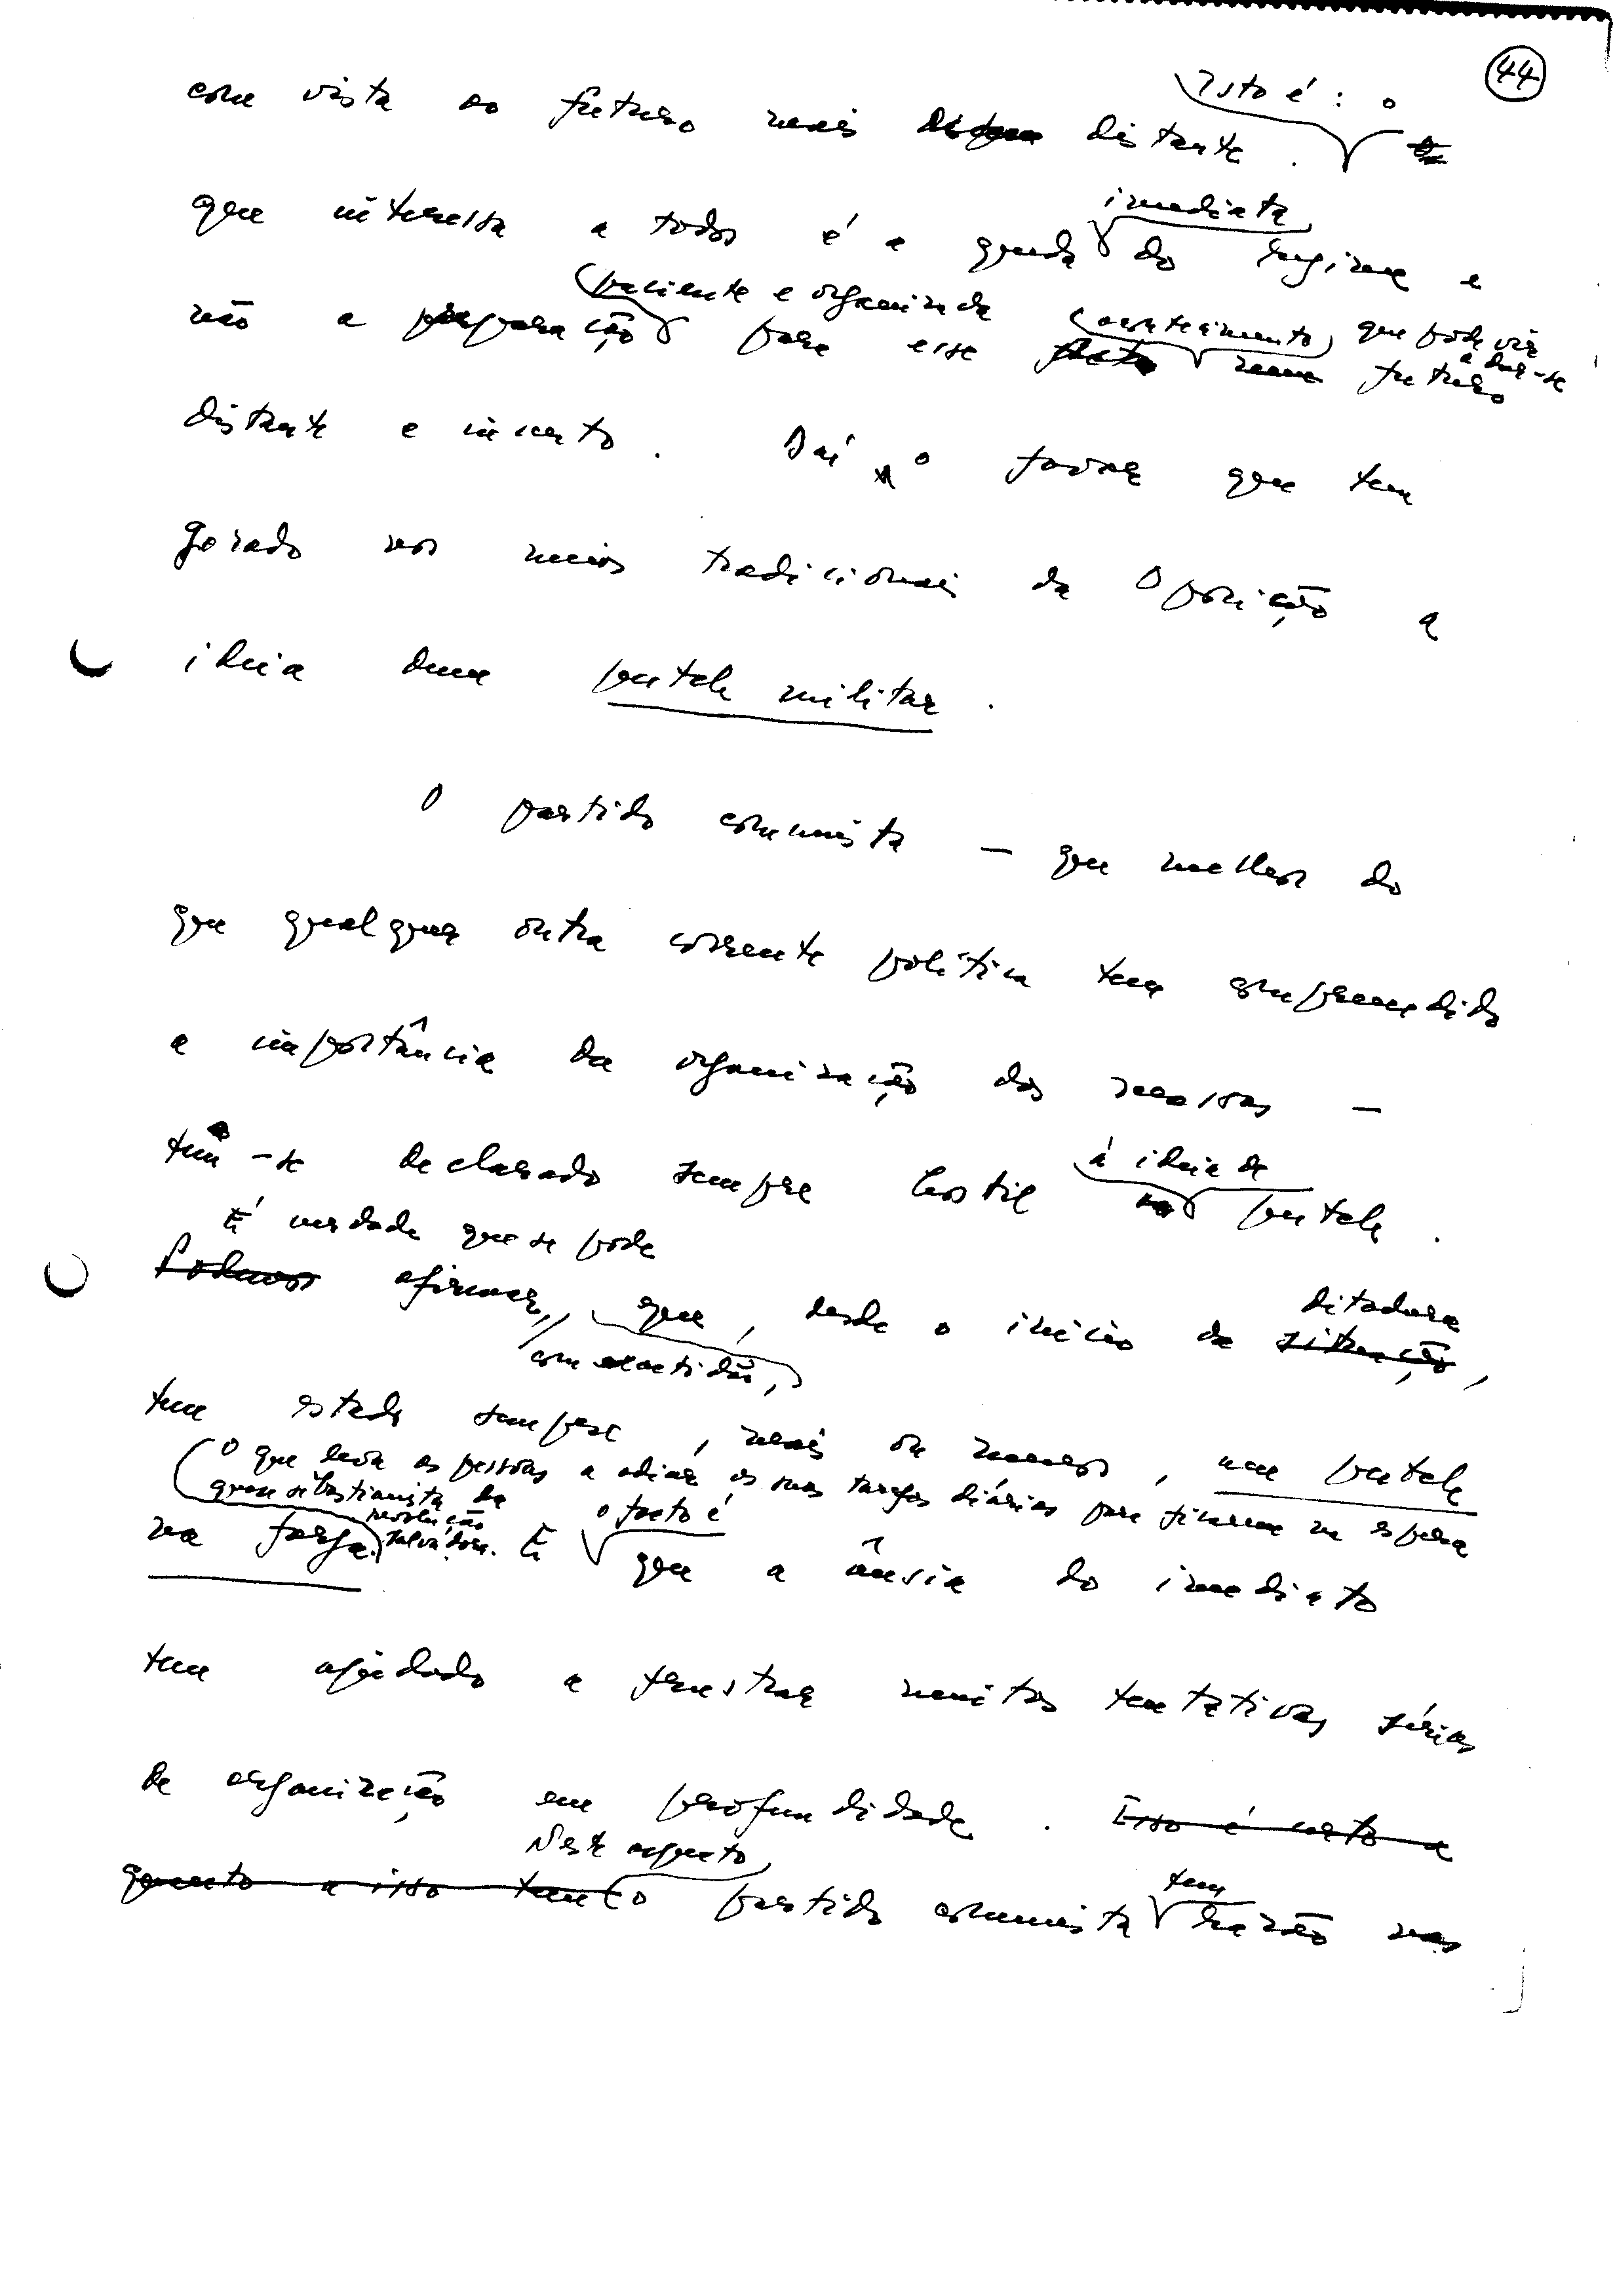 44
isto é : o
com vista ao futuro mais distante .
imediata
que interessa a todos é a queda do regime e
paciente e organizada
acontecimento, que pode vir
a dar-se
não a preparação para esse facto num futuro
distante e incerto . Daí o favor que tem
gozado nos meios tradicionais da Oposição a
ideia dum putch militar .
O partido comunista — que melhor do
que qualquer outra corrente política tem compreendido
a importância da organização das massas —
à ideia de
tem-se declarado sempre hostil ao putch .
É verdade que se pode
ditadura
Podemos afirmar, que, desde o início da situação,
com exactidão,
tem estado sempre, mais ou menos, um putch
O que leva as pessoas a adiar as suas tarefas diárias para ficarem na espera
quase sebastianista da
revolução
salvadora.
o facto é
na forja. E que a ânsia do imediato
tem ajudado a frustrar muitas tentativas sérias
de organização em profundidade . Isso é certo e
Neste aspecto
tem
quanto a isso tem o partido comunista razão mas